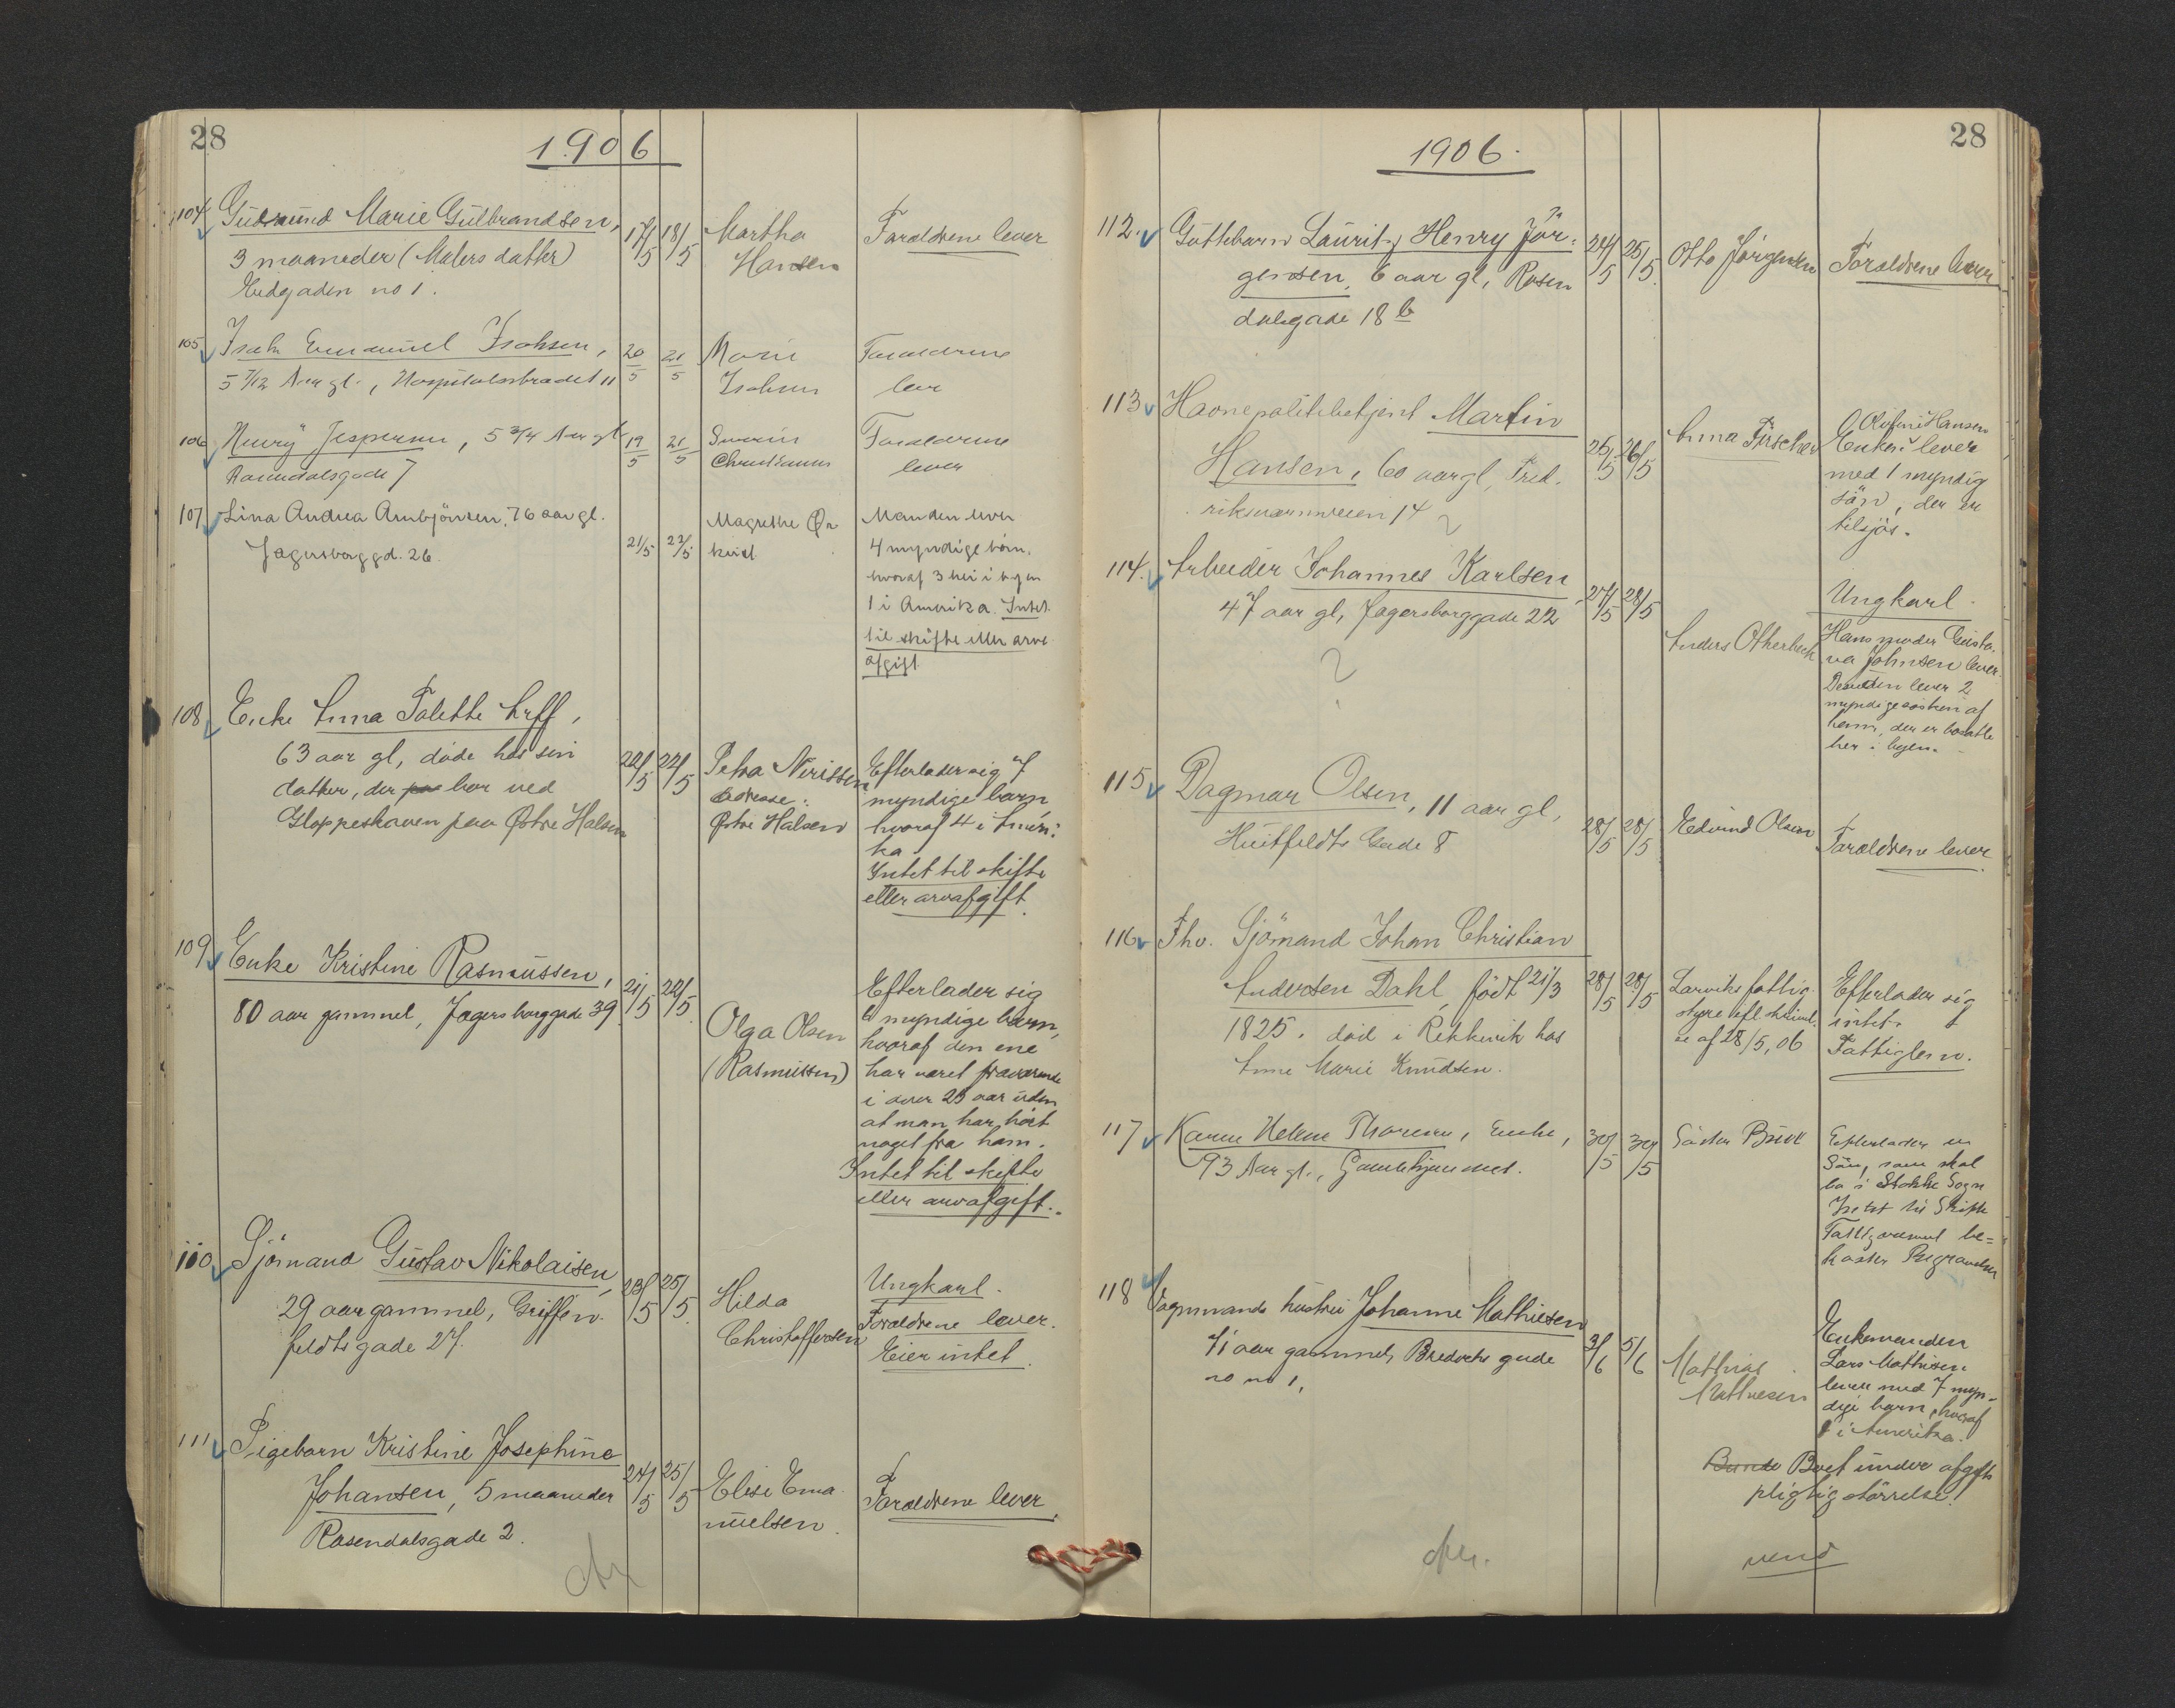 28
1906
104 Gudmund Marie Gulbrandsen,
3 maaneder (Malers datter)
no 1.
17/5 18/5
Martha
Hansen
Forældrene lever
105 Isak Emanuel Isaksen,
5 7/12 Aar gl., Hospitalsstrædet 11
20/5 21/5
Marie
Isaksen
Forældrene
lever
106 Henry Jespersen, 5 3/4 Aar gl
7
19/5 21/5
Christiansen
Forældrene
lever
107 Lina Andrea Arnbjönsen, 76 aar gl.
Jegersborggd. 26.
21/5 22/5
Magrethe Qva
kvist
Manden lever
4 myndige börn,
hvoraf 3 her i byen
1 i Amerika. Intet
til skifte eller arve
afgift
108 Enke Anna Talette Arff,
63 aar gl, döde hos sin
datter, der bor ved
Gloppeskaven paa Østre Halsen
22/5 22/5
Petra Nerissen
Adresse:
Østre Halsen
Efterlader sig 7
myndige børn,
hvoraf 4 i Ameri-
ka
Intet til skifte
eller arveafgift.
109 Enke Kristine Rasmussen,
80 aar gammel, Jegersborggade 39.
21/5 22/5
Olga Olsen
(Rasmussen)
Efterlader sig
6 myndige børn,
hvoraf den ene
har været fraværende
i over 23 aar uden
at man har hört
noget fra ham.
Intet til skifte
eller arveafgift.
110 Sjömand Gustav Nikolaisen,
29 aar gammel, Griffen-
feldts gade 27.
23/5 25/5
Hilda
Christoffersen
Ungkarl.
Forældrene lever.
Eier intet.
111 Pigebarn Kristine Josephine
Johansen, 5 maaneder
Rosendalsgade 2.
24/5 25/5
Elise Ema-
nuelsen.
Forældrene lever.
28
1906.
112. Guttebarn Lauritz Henry Jör-
gensen, 6 aar gl, Rosen
dalsgade 18 b
24/5 25/5
Otto Jörgensen
Forældrene lever
113 Havnepolitibetjent Martin
Hansen, 60 aar gl, Fred-
riksværnsveien 14
25/5 26/5
Anna Fischer
Olufine Hansen
Enken lever
med 1 myndig
sön, der er
tilsjös.
114. Arbeider Johannes Karlsen
47 aar gl, Jegersborggade 22
?
27/5 28/5
Anders Otherbech
Ungkarl.
Hans moder Gusta-
va Johnsen lever.
Desuden lever 2
myndige søsken af
ham, der er bosatte
her i byen.
115 Dagmar Olsen, 11 aar gl,
Huitfeldts Gade 8
28/5 28/5
Edvind Olsen
Forældrene lever
116 Fhv. Sjömand Johan Christian
Andersen Dahl, födt 21/3
1825. död i Rekkevik hos
Anne Marie Knudsen.
28/5 28/5
Larviks fattig-
styre ifl skrivel-
se af 28/5, 06
Efterlader sig
intet.
Fattiglem.
117 Karen Helene Thoresen, Enke,
93 Aar gl., Gamlehjemmet.
30/5 30/5
Söster Buve
Efterlader en
Sön, som skal
bo i Stokke Sogn
Intet til Skifte
Fattigvæsenet be=
koster Begravelsen
118 Vognmands hustru Johanne Mathiesen
71 aar gammel, Bredochs gade
no no 1,
3/6 5/6
Mathias
Mathiesen
Enkemanden
Lars Mathisen
lever med 7 myn-
dige barn, hvoraf
1 i Amerika.
Boet under afgifts
pligtig störrelse!
vend